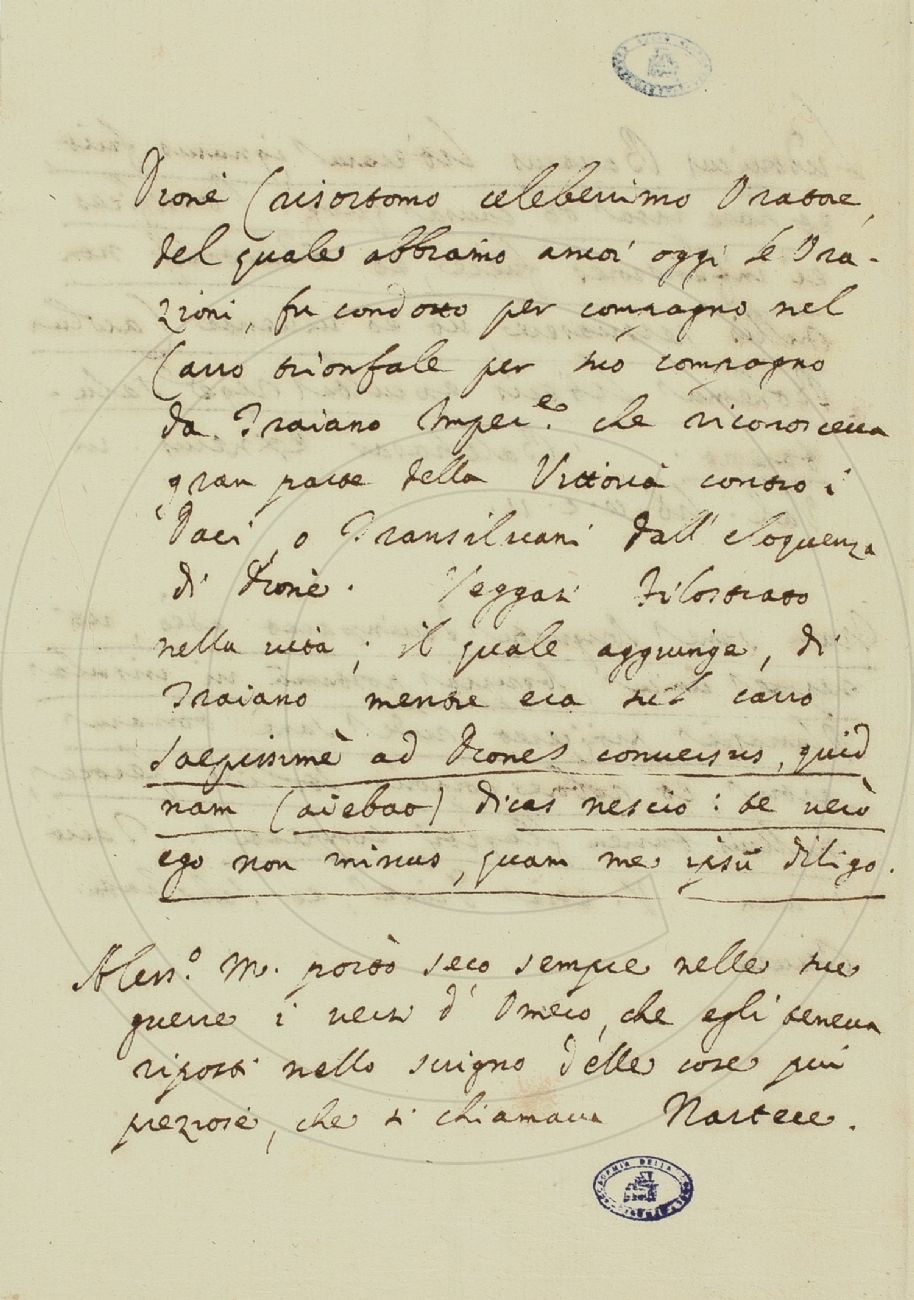 Dione Crisostomo celeberrimo Oratore,
del quale abbiamo ancoi oggi le Ora-
zioni, fu condotto per compagno nel
Carro trionfale per suo compagno
da Traiano Imper.e che riconosceva
gran parte della Vittoria contro i
Daci, o Transilvani dall'eloquenza
di Dione. Veggasi Filostrato
nella vita; il quale aggiunge, di
Traiano mentre era sul carro
saepissimè ad Diones conversus, quid
nam (aiebat) dicas nescio: te verò
ego non minus, quam me ipsū diligo.
Aless.o M. portò seco sempre nelle sue
guerre i versi d'Omero, che egli teneva
riposti nello scrigno delle cose più
preziose, che si chiamava Nartece.